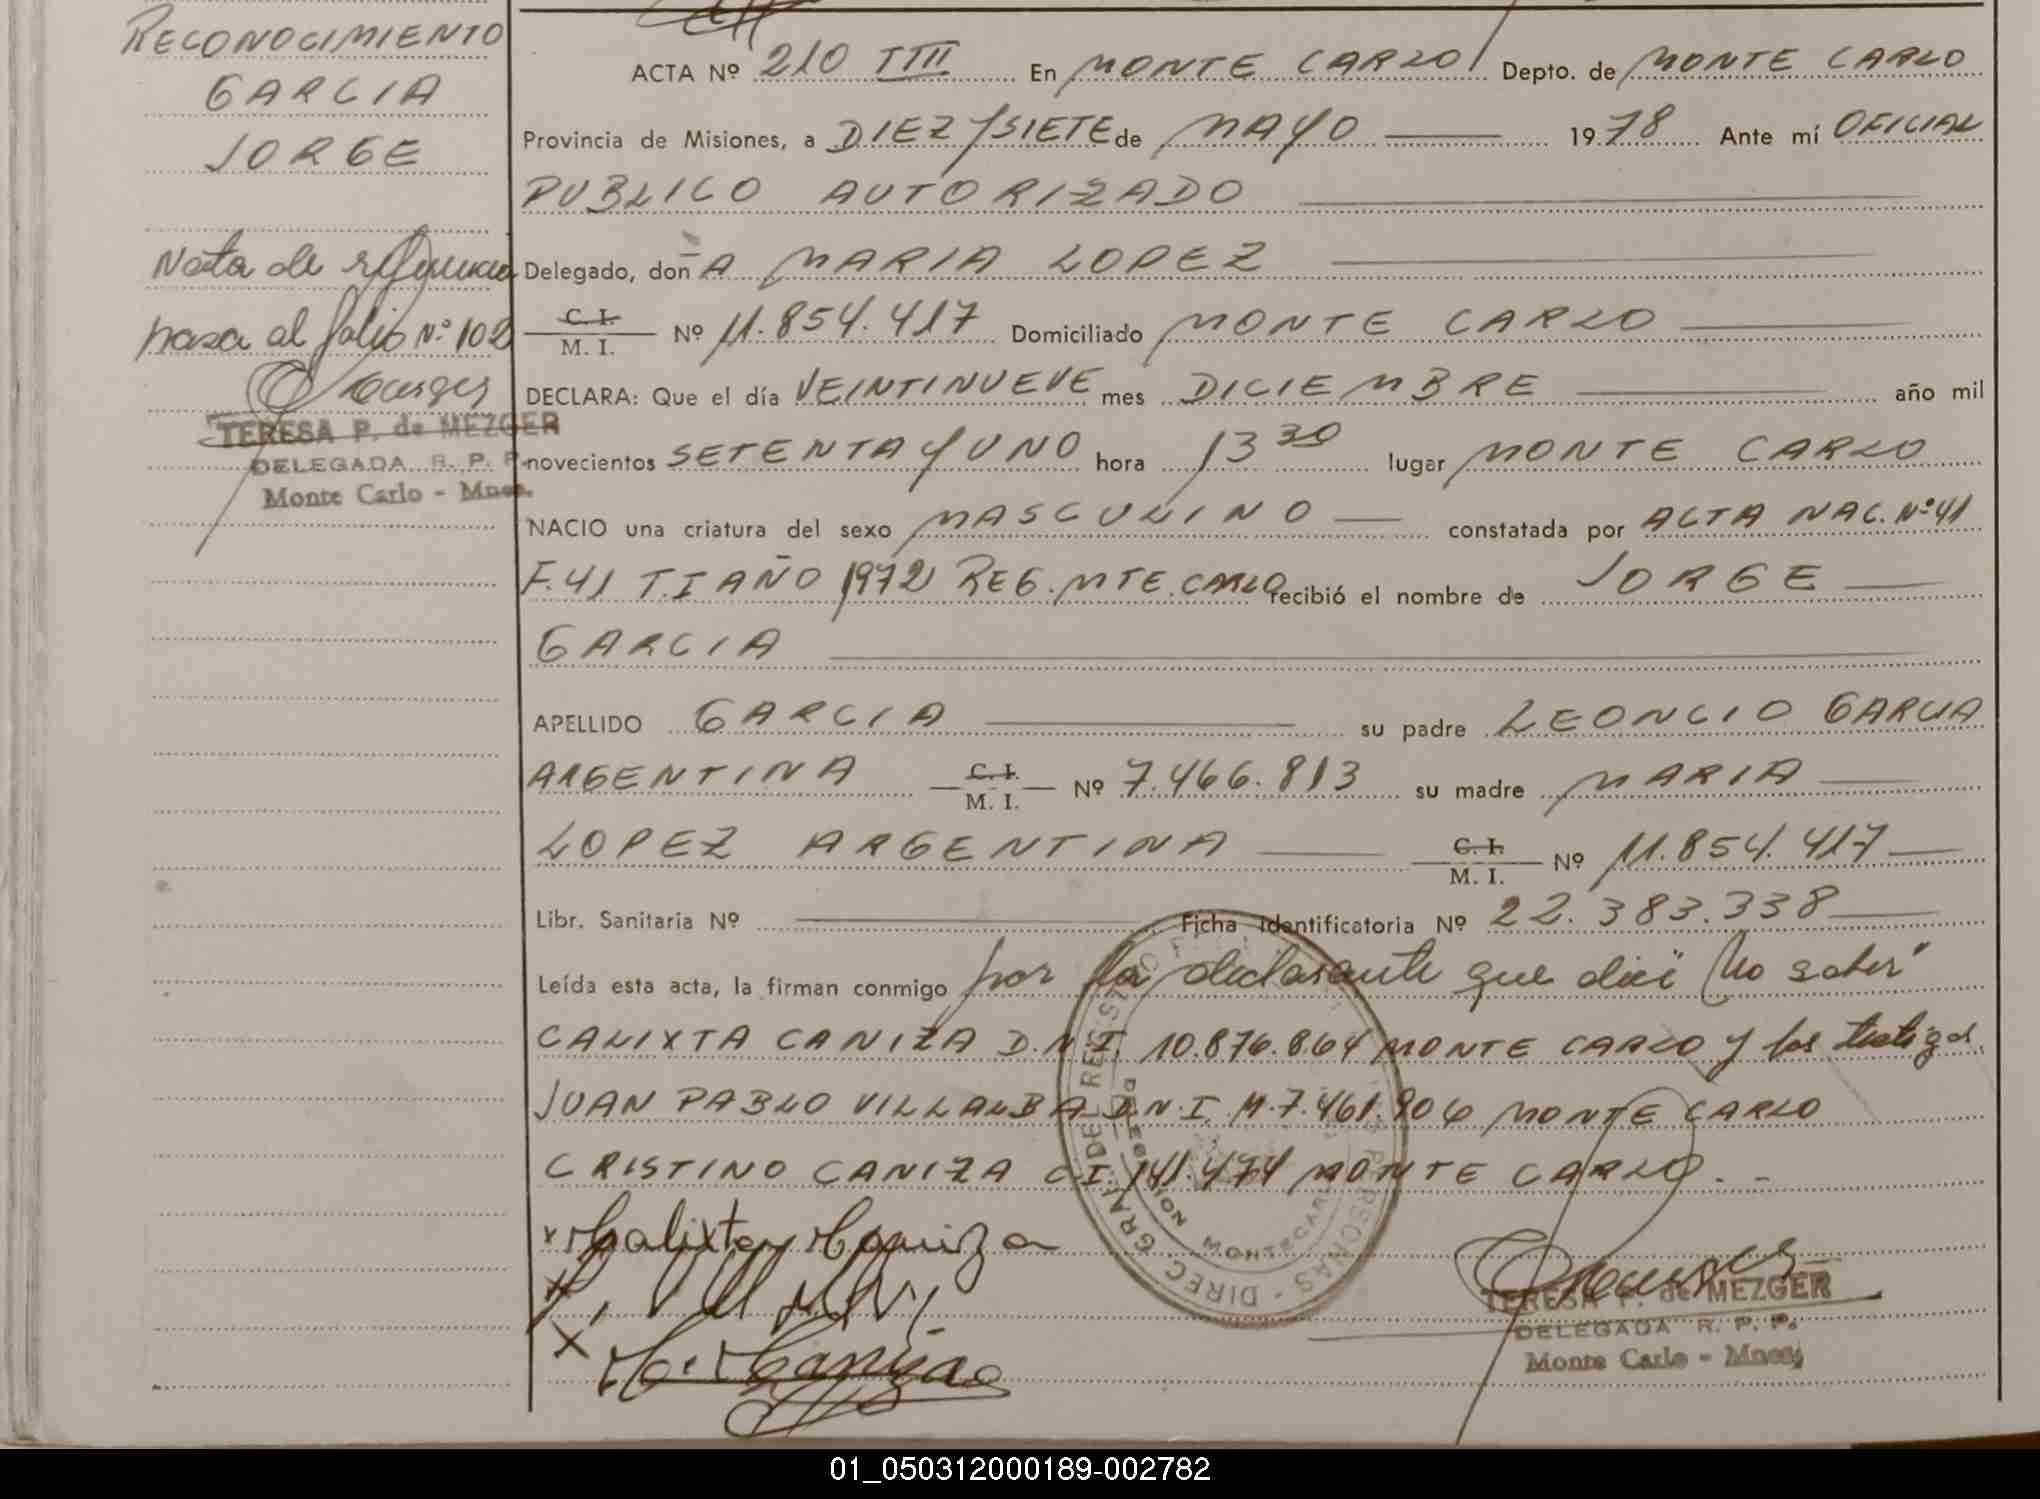 RECONOCIMIENTO
GARCIA
JORGE
Nota de referencia
pasa al folio Nº 102
TERESA P. de MEZGER
DELEGADA R. P. P.
Monte Carlo - Mnes.
ACTA Nº 210 TIII En MONTE CARLO Depto. de MONTE CARLO
Provincia de Misiones, a DIEZ Y SIETE de MAYO 1978 Ante mí OFICIAL
PUBLICO AUTORIZADO
Delegado, don A MARIA LOPEZ
C. I.
M. I. Nº 11.854.417 Domiciliado MONTE CARLO
DECLARA: Que el día VEINTINUEVE mes DICIEMBRE año mil
novecientos SETENTA Y UNO hora 13 30 lugar MONTE CARLO
NACIO una criatura del sexo MASCULINO constatada por ACTA NAC. Nº 41
F. 41 T. I AÑO 1972 REG. MTE. CARLO recibió el nombre de JORGE
GARCIA
APELLIDO GARCIA su padre LEONCIO GARCIA
ARGENTINA C. I. M. I. Nº 7.466.813 su madre MARIA
LOPEZ ARGENTINA C. I. M. I. Nº 11.854.417
Libr. Sanitaria Nº Ficha Identificatoria Nº 22.383.338
Leída esta acta, la firman conmigo por la declarante que dice "No saber"
CALIXTA CANIZA D.N.I. 10.876.864 MONTE CARLO y los testigos
JUAN PABLO VILLALBA D.N.I. M. 7.461.806 MONTE CARLO
CRISTINO CANIZA C.I. 141.474 MONTE CARLO. -
x Calixta Caniza
x
x C. Caniza
DIREC. GRAL. DEL REGISTRO PERSONAS
MONTECARLO
TERESA P. de MEZGER
DELEGADA R. P. P.
Monte Carlo - Mnes.
01_050312000189-002782